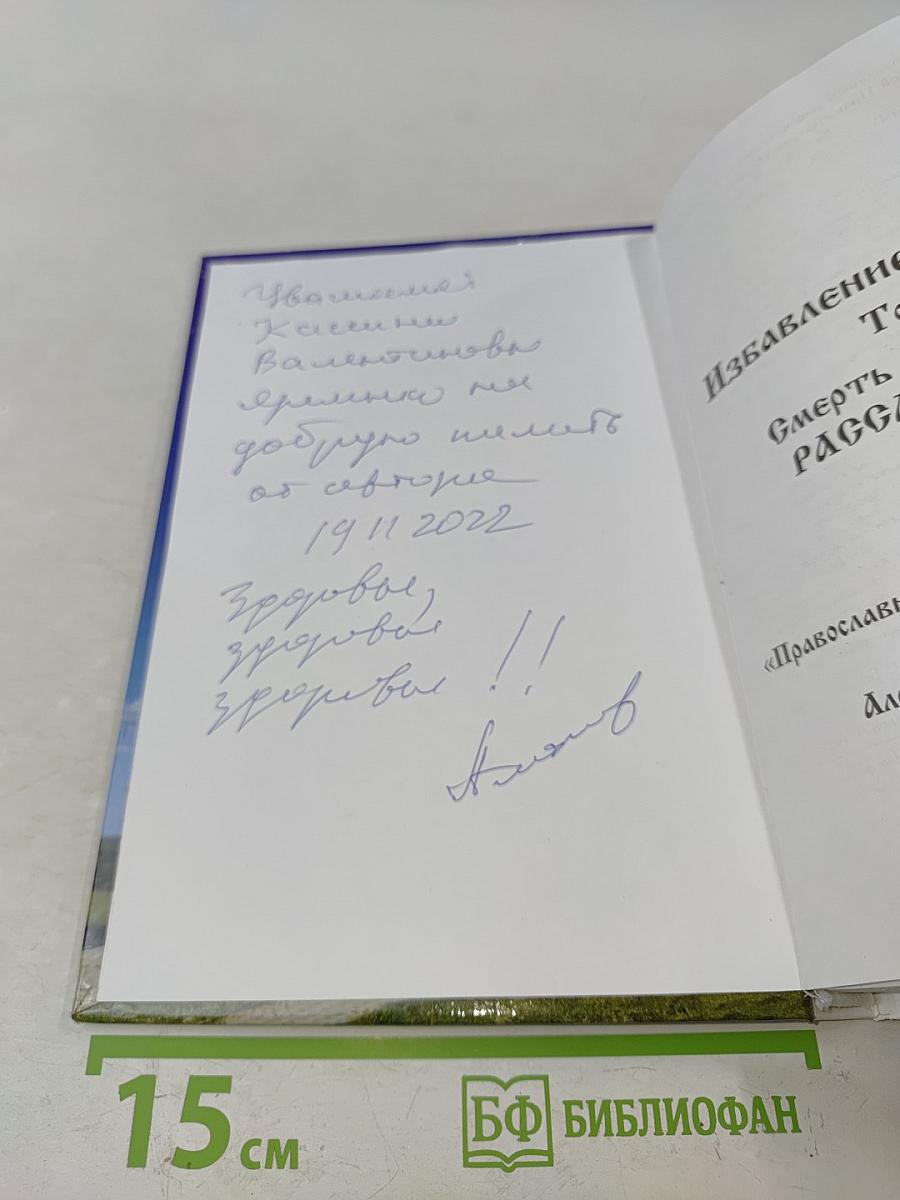 Уважаемой
Валентиновны
на
добрую память
от автора
19 11 2022
Здоровья,
здоровья
здоровья !!
Избавление
Смерть
«Православн
15 см
БФ БИБЛИОФАН